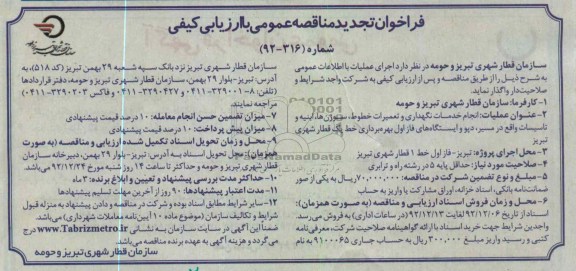 فراخوان تجدید مناقصه عمومی با ارزیابی کیفی
شماره (۳۱۶-۹۲)
سازمان قطار شهری تبریز و حومه در نظر دارد اجرای عملیات با اطلاعات عمومی
به شرح ذیل را از طریق مناقصه و پس از ارزیابی کیفی به شرکت واجد شرایط و
صلاحیت‌دار واگذار نماید.
۱- کارفرما: سازمان قطار شهری تبریز و حومه
۲- عنوان عملیات: انجام خدمات نگهداری و تعمیرات خطوط، ستون‌ها، ابنیه و
تاسیسات واقع در مسیر، دپو و ایستگاه‌های فاز اول بهره‌برداری خط یک قطار شهری
تبریز
۳- محل اجرای پروژه: تبریز- فاز اول خط ۱ قطار شهری تبریز
۴- صلاحیت مورد نیاز: حداقل پایه ۵ در رشته راه و ترابری
۵- مبلغ و نوع تضمین شرکت در مناقصه: ۷۰٫۰۰۰٫۰۰۰ ریال به یکی از صور
ضمانت‌نامه بانکی، اسناد خزانه، اوراق مشارکت یا واریز به حساب
۶- محل و زمان فروش اسناد ارزیابی و مناقصه (به صورت همزمان):
اسناد از تاریخ ۹۲/۱۲/۰۶ لغایت ۹۲/۱۲/۱۳ (در ساعات اداری) به فروش می‌رسد.
واجدین شرایط جهت خرید اسناد با ارائه گواهینامه صلاحیت شرکت، معرفی‌نامه
کتبی و رسید واریز مبلغ ۳۰۰٫۰۰۰ ریال به حساب جاری ۹۱۰۰۰۶۵ به نام
سازمان قطار شهری تبریز نزد بانک سپه شعبه ۲۹ بهمن تبریز (کد ۵۱۸)، به
آدرس: تبریز- بلوار ۲۹ بهمن، سازمان قطار شهری تبریز و حومه، دفتر قراردادها
(تلفن: ۸-۳۲۹۰۰۱-۰۴۱۱ و ۳۲۹۰۴۲۷-۰۴۱۱ و فاکس ۳۲۹۰۲۰۳-۰۴۱۱)
مراجعه نمایند.
۷- میزان تضمین حسن انجام معامله: ۱۰ درصد قیمت پیشنهادی
۸- میزان پیش پرداخت: ۱۰ درصد قیمت پیشنهادی
۹- محل و زمان تحویل اسناد تکمیل شده ارزیابی و مناقصه (به صورت
همزمان): محل تحویل اسناد به آدرس: تبریز- بلوار ۲۹ بهمن، دبیرخانه سازمان
قطار شهری تبریز و حومه و حداکثر تا ساعت ۱۴ روز شنبه مورخ ۹۲/۱۲/۲۴ می‌باشد
۱۰- حداکثر مدت بررسی پیشنهاد و تعیین و ابلاغ برنده: ۳ ماه
۱۱- مدت اعتبار پیشنهادها: ۹۰ روز از آخرین مهلت تسلیم پیشنهادها
۱۲- سایر شرایط مطابق اسناد بوده و شرکت در مناقصه و دادن پیشنهاد به منزله قبول
شرایط و تکالیف سازمان (موضوع ماده ۱۰ آیین‌نامه معاملات شهرداری) می‌باشد.
ضمناً این آگهی در سایت سازمان به نشانی www.Tabrizmetro.ir درج
می‌گردد و هزینه آگهی به عهده برنده مناقصه می‌باشد.
سازمان قطار شهری تبریز و حومه